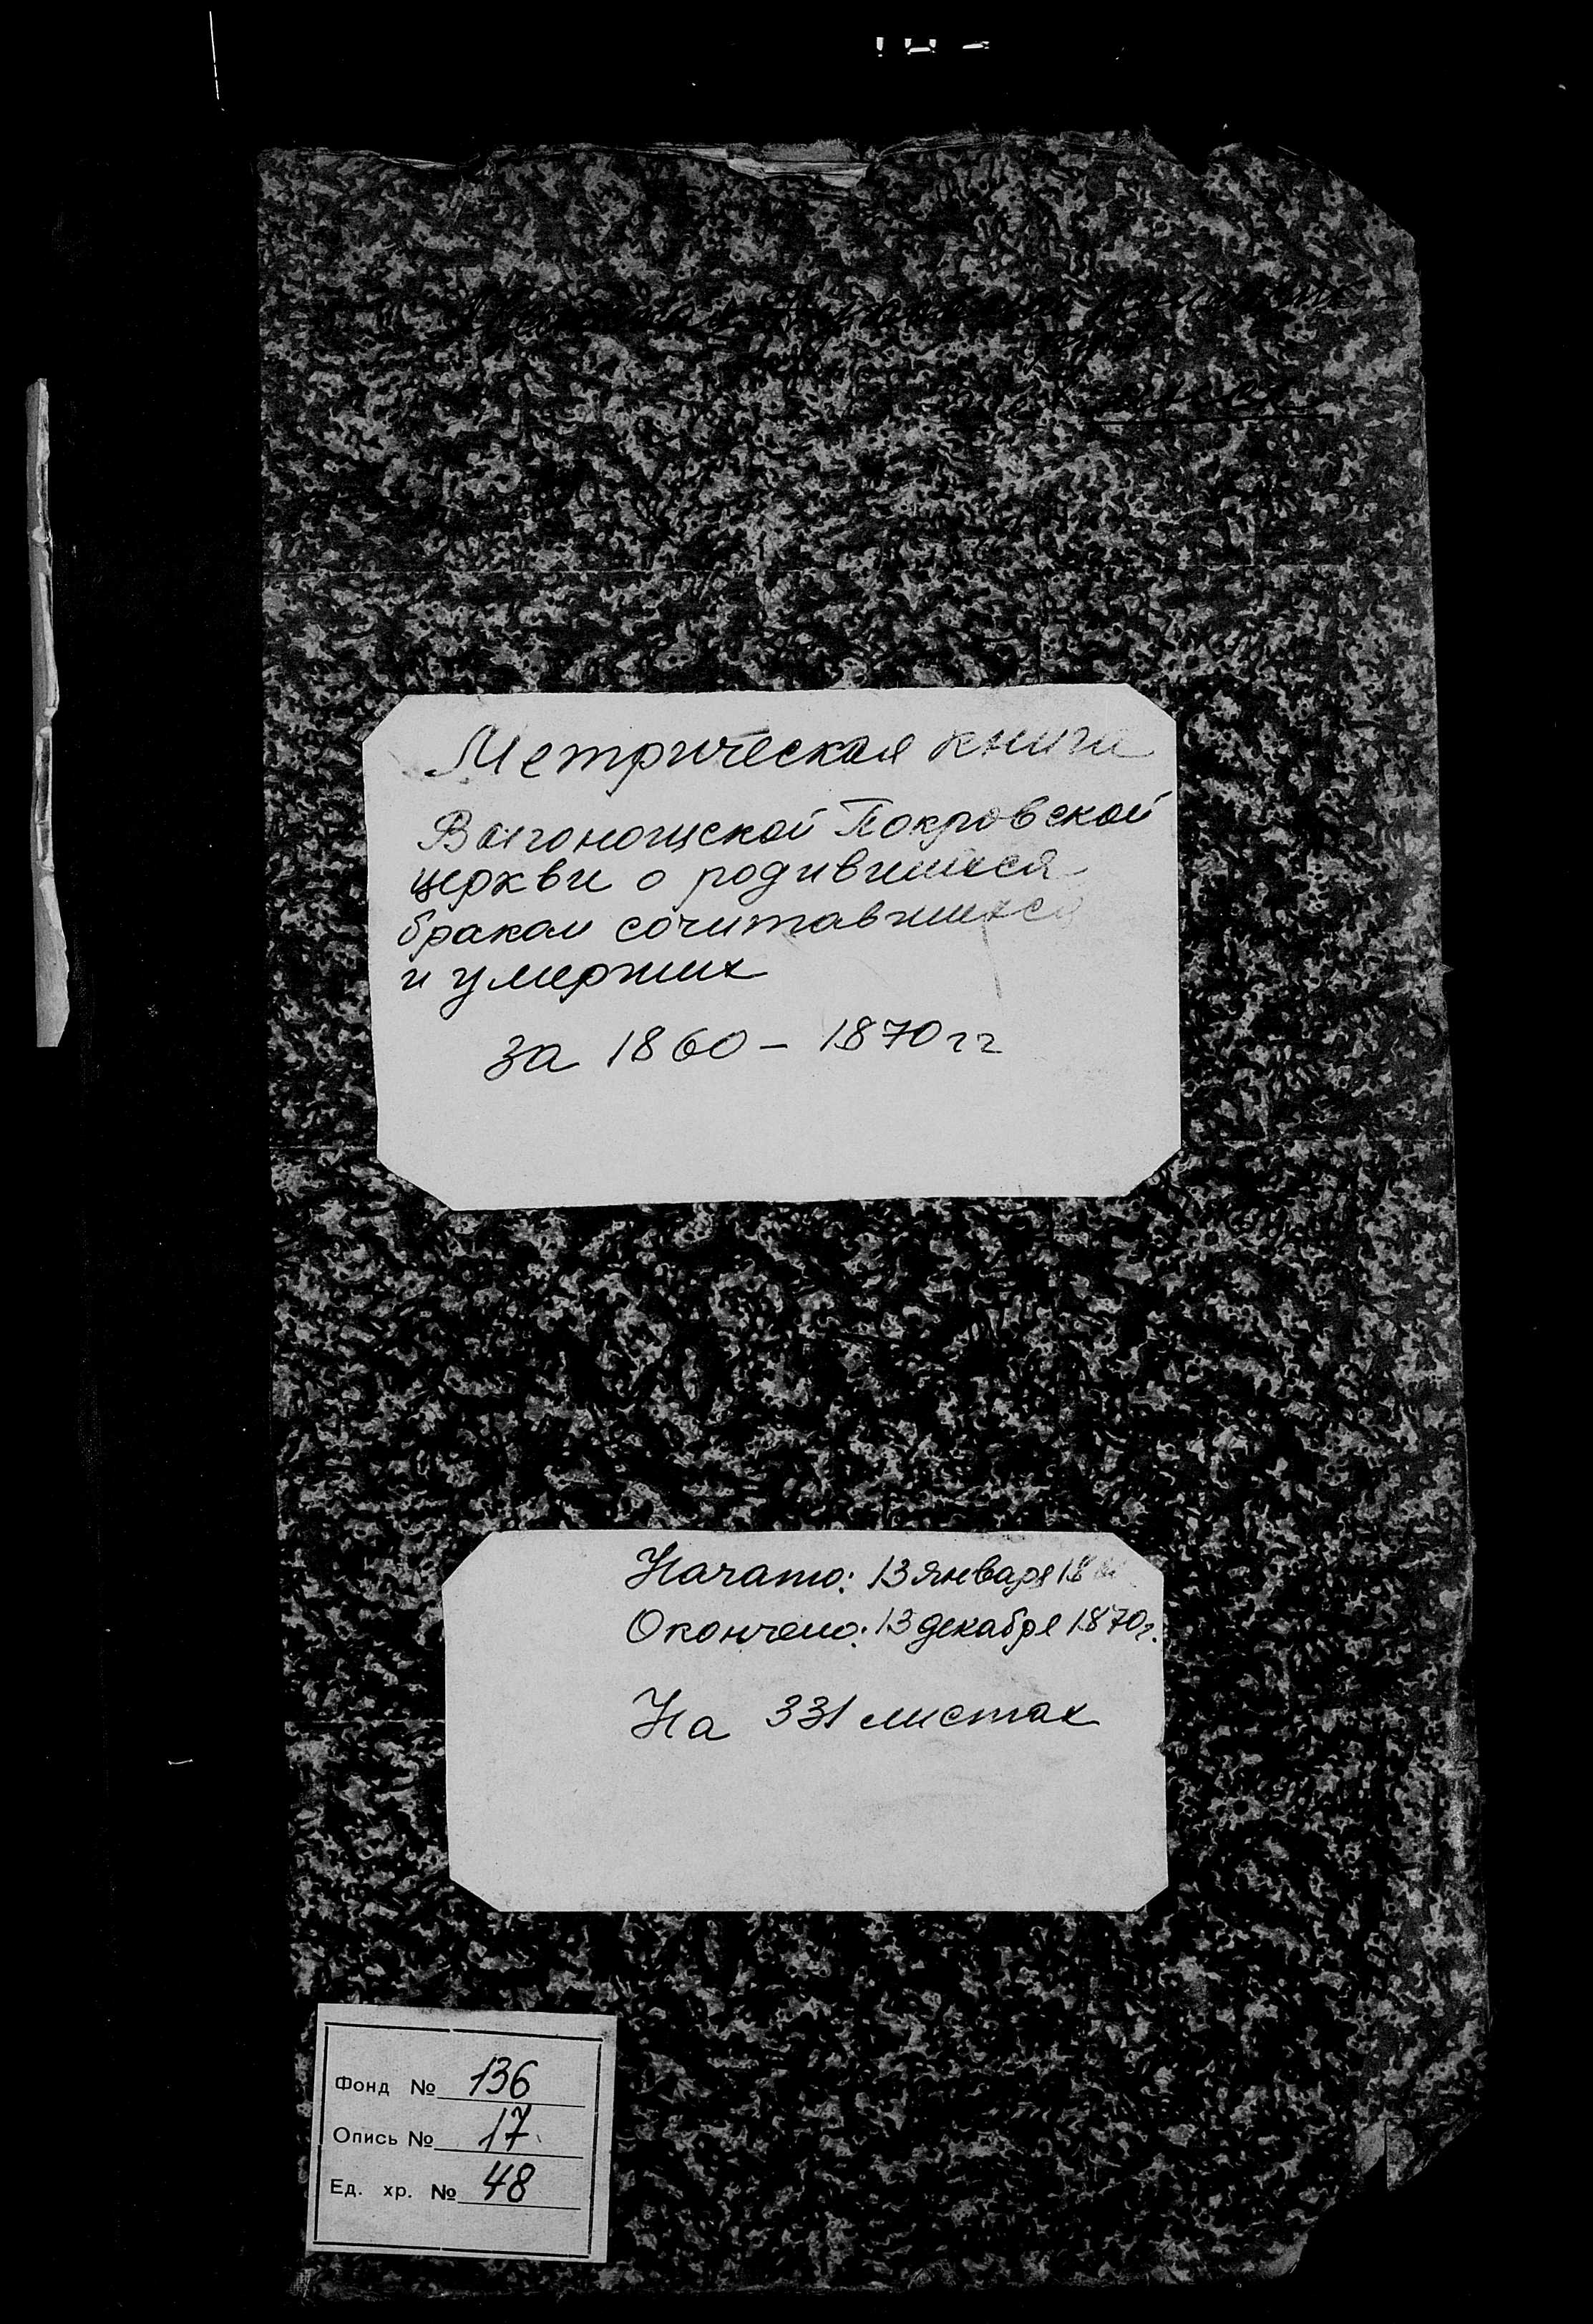 Метрическая книга
Вычонощской Покровской
церкви о родившихся
браком сочитавшихся
и умерших
за 1860 – 1870 гг
Начато: 13 января 18
Окончено: 13 декабря 1870г.
На 331 листах
Фонд № 136
Опись № 17
Ед. хр. № 48